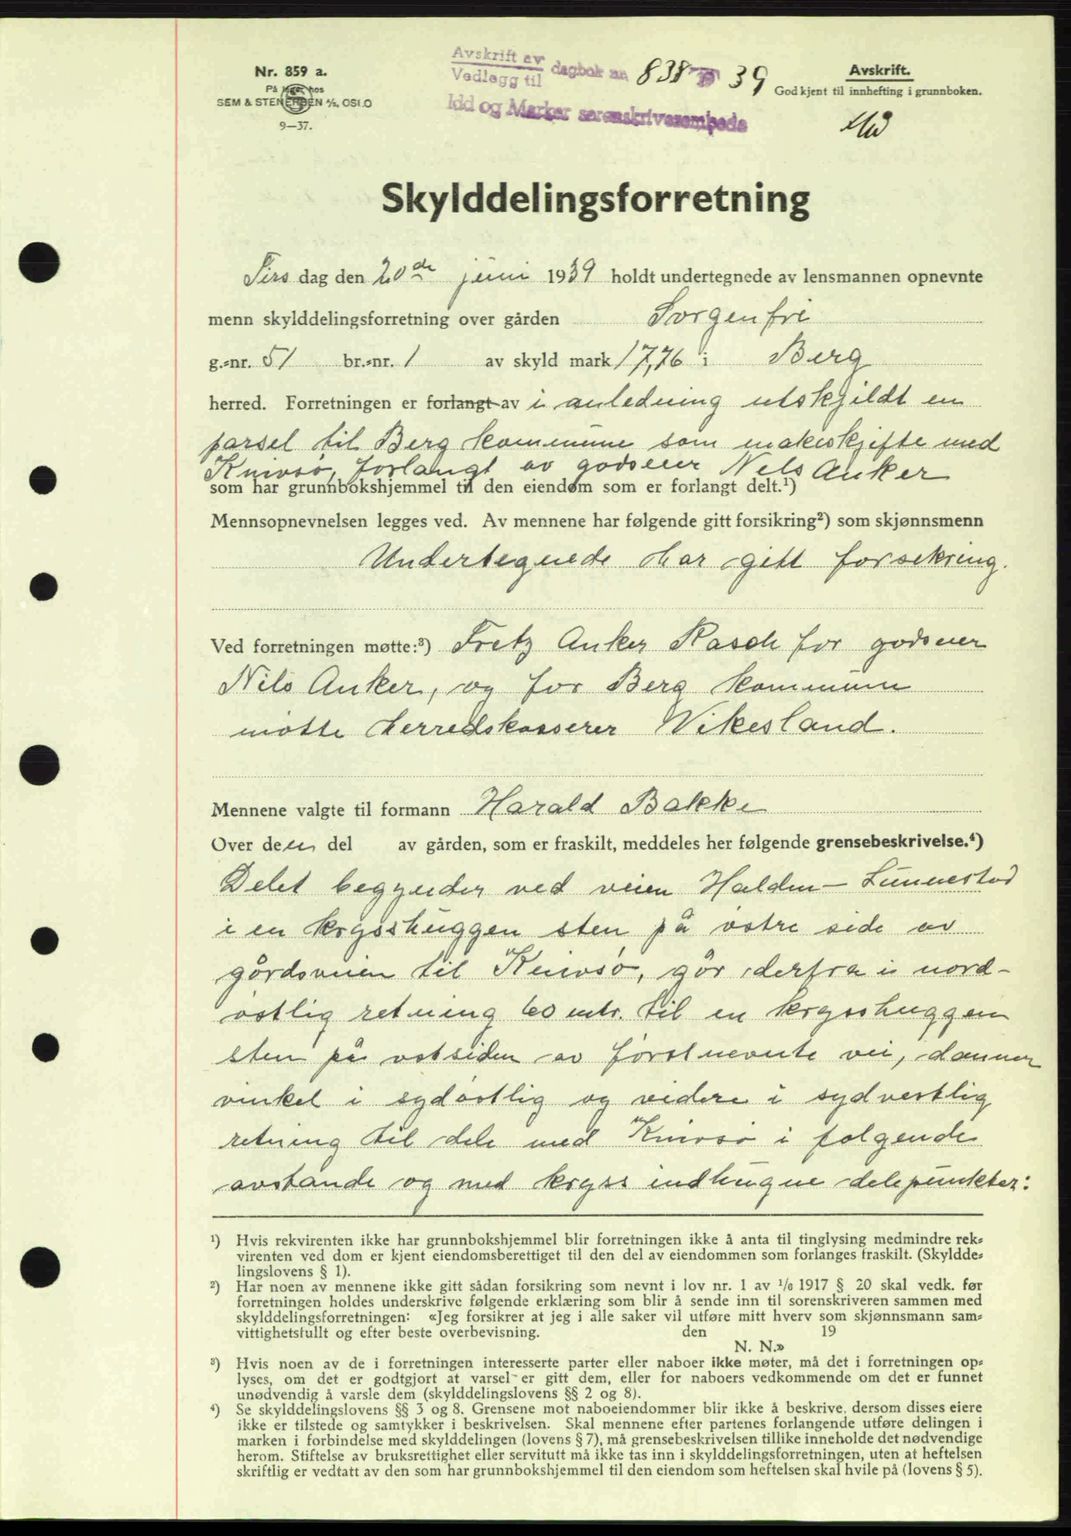 Nr. 859 a.
På lager hos
SEM & STENERSEN A/S, OSLO
9—37.
Avskrift av
Vedlegg til dagbok nr. 838 39
Idd og Marker sorenskriverembede
Avskrift.
Godkjent til innhefting i grunnboken.
Skylddelingsforretning
Tirs dag den 20de juni 1939 holdt undertegnede av lensmannen opnevnte
menn skylddelingsforretning over gården Sorgenfri
g.-nr. 51 br.-nr. 1 av skyld mark 17,76 i Berg
herred. Forretningen er forlangt av i anledning utskjildt en
parsel til Berg kommune som makeskjifte med
Knivsø, forlangt av godseier Nils Anker
som har grunnbokshjemmel til den eiendom som er forlangt delt.¹)
Mennsopnevnelsen legges ved. Av mennene har følgende gitt forsikring²) som skjønnsmenn
Undertegnede har gitt forsekring.
Ved forretningen møtte:³) Fretz Anker Rasch for godseier
Nils Anker, og for Berg kommune
møtte herredskasserer Vikesland.
Mennene valgte til formann Harald Bakke
Over den del av gården, som er fraskilt, meddeles her følgende grensebeskrivelse.⁴)
Delet begynder ved veien Halden - Lunnestad
i en krysshuggen sten på østre side av
gårdsveien til Knivsø, går derfra i nord-
østlig retning 60 mtr. til en krysshuggen
sten på østsiden av førstnevnte vei, danner
vinkel i sydøstlig og videre i sydvestlig
retning til dele med Knivsø i følgende
avstande og med kryss indhugne delepunkter:
¹) Hvis rekvirenten ikke har grunnbokshjemmel blir forretningen ikke å anta til tinglysing medmindre rek-
virenten ved dom er kjent eiendomsberettiget til den del av eiendommen som forlanges fraskilt. (Skyldde-
lingslovens § 1).
²) Har noen av mennene ikke gitt sådan forsikring som nevnt i lov nr. 1 av 1/6 1917 § 20 skal vedk. før
forretningen holdes underskrive følgende erklæring som blir å sende inn til sorenskriveren sammen med
skylddelingsforretningen: «Jeg forsikrer at jeg i alle saker vil utføre mitt hverv som skjønnsmann sam-
vittighetsfullt og efter beste overbevisning. den 19
N. N.»
³) Hvis noen av de i forretningen interesserte parter eller naboer ikke møter, må det i forretningen op-
lyses, om det er godtgjort at varsel er gitt dem, eller for naboers vedkommende om det er funnet
unødvendig å varsle dem (skylddelingslovens §§ 2 og 8).
⁴) Se skylddelingslovens §§ 3 og 8. Grensene mot naboeiendommer blir ikke å beskrive, dersom disses eiere
ikke er tilstede og samtykker i beskrivelsen. Skal mennene efter partenes forlangende utføre delingen i
marken i forbindelse med skylddelingen (lovens § 7), må grensebeskrivelsen tillike inneholde det nødvendige
herom. Stiftelse av bruksrettighet eller servitutt må ikke tas inn i skylddelingsforretningen, uten at heftelsen
skriftlig er vedtatt av den som har grunnbokshjemmel til den eiendom som heftelsen skal hvile på (lovens § 5).